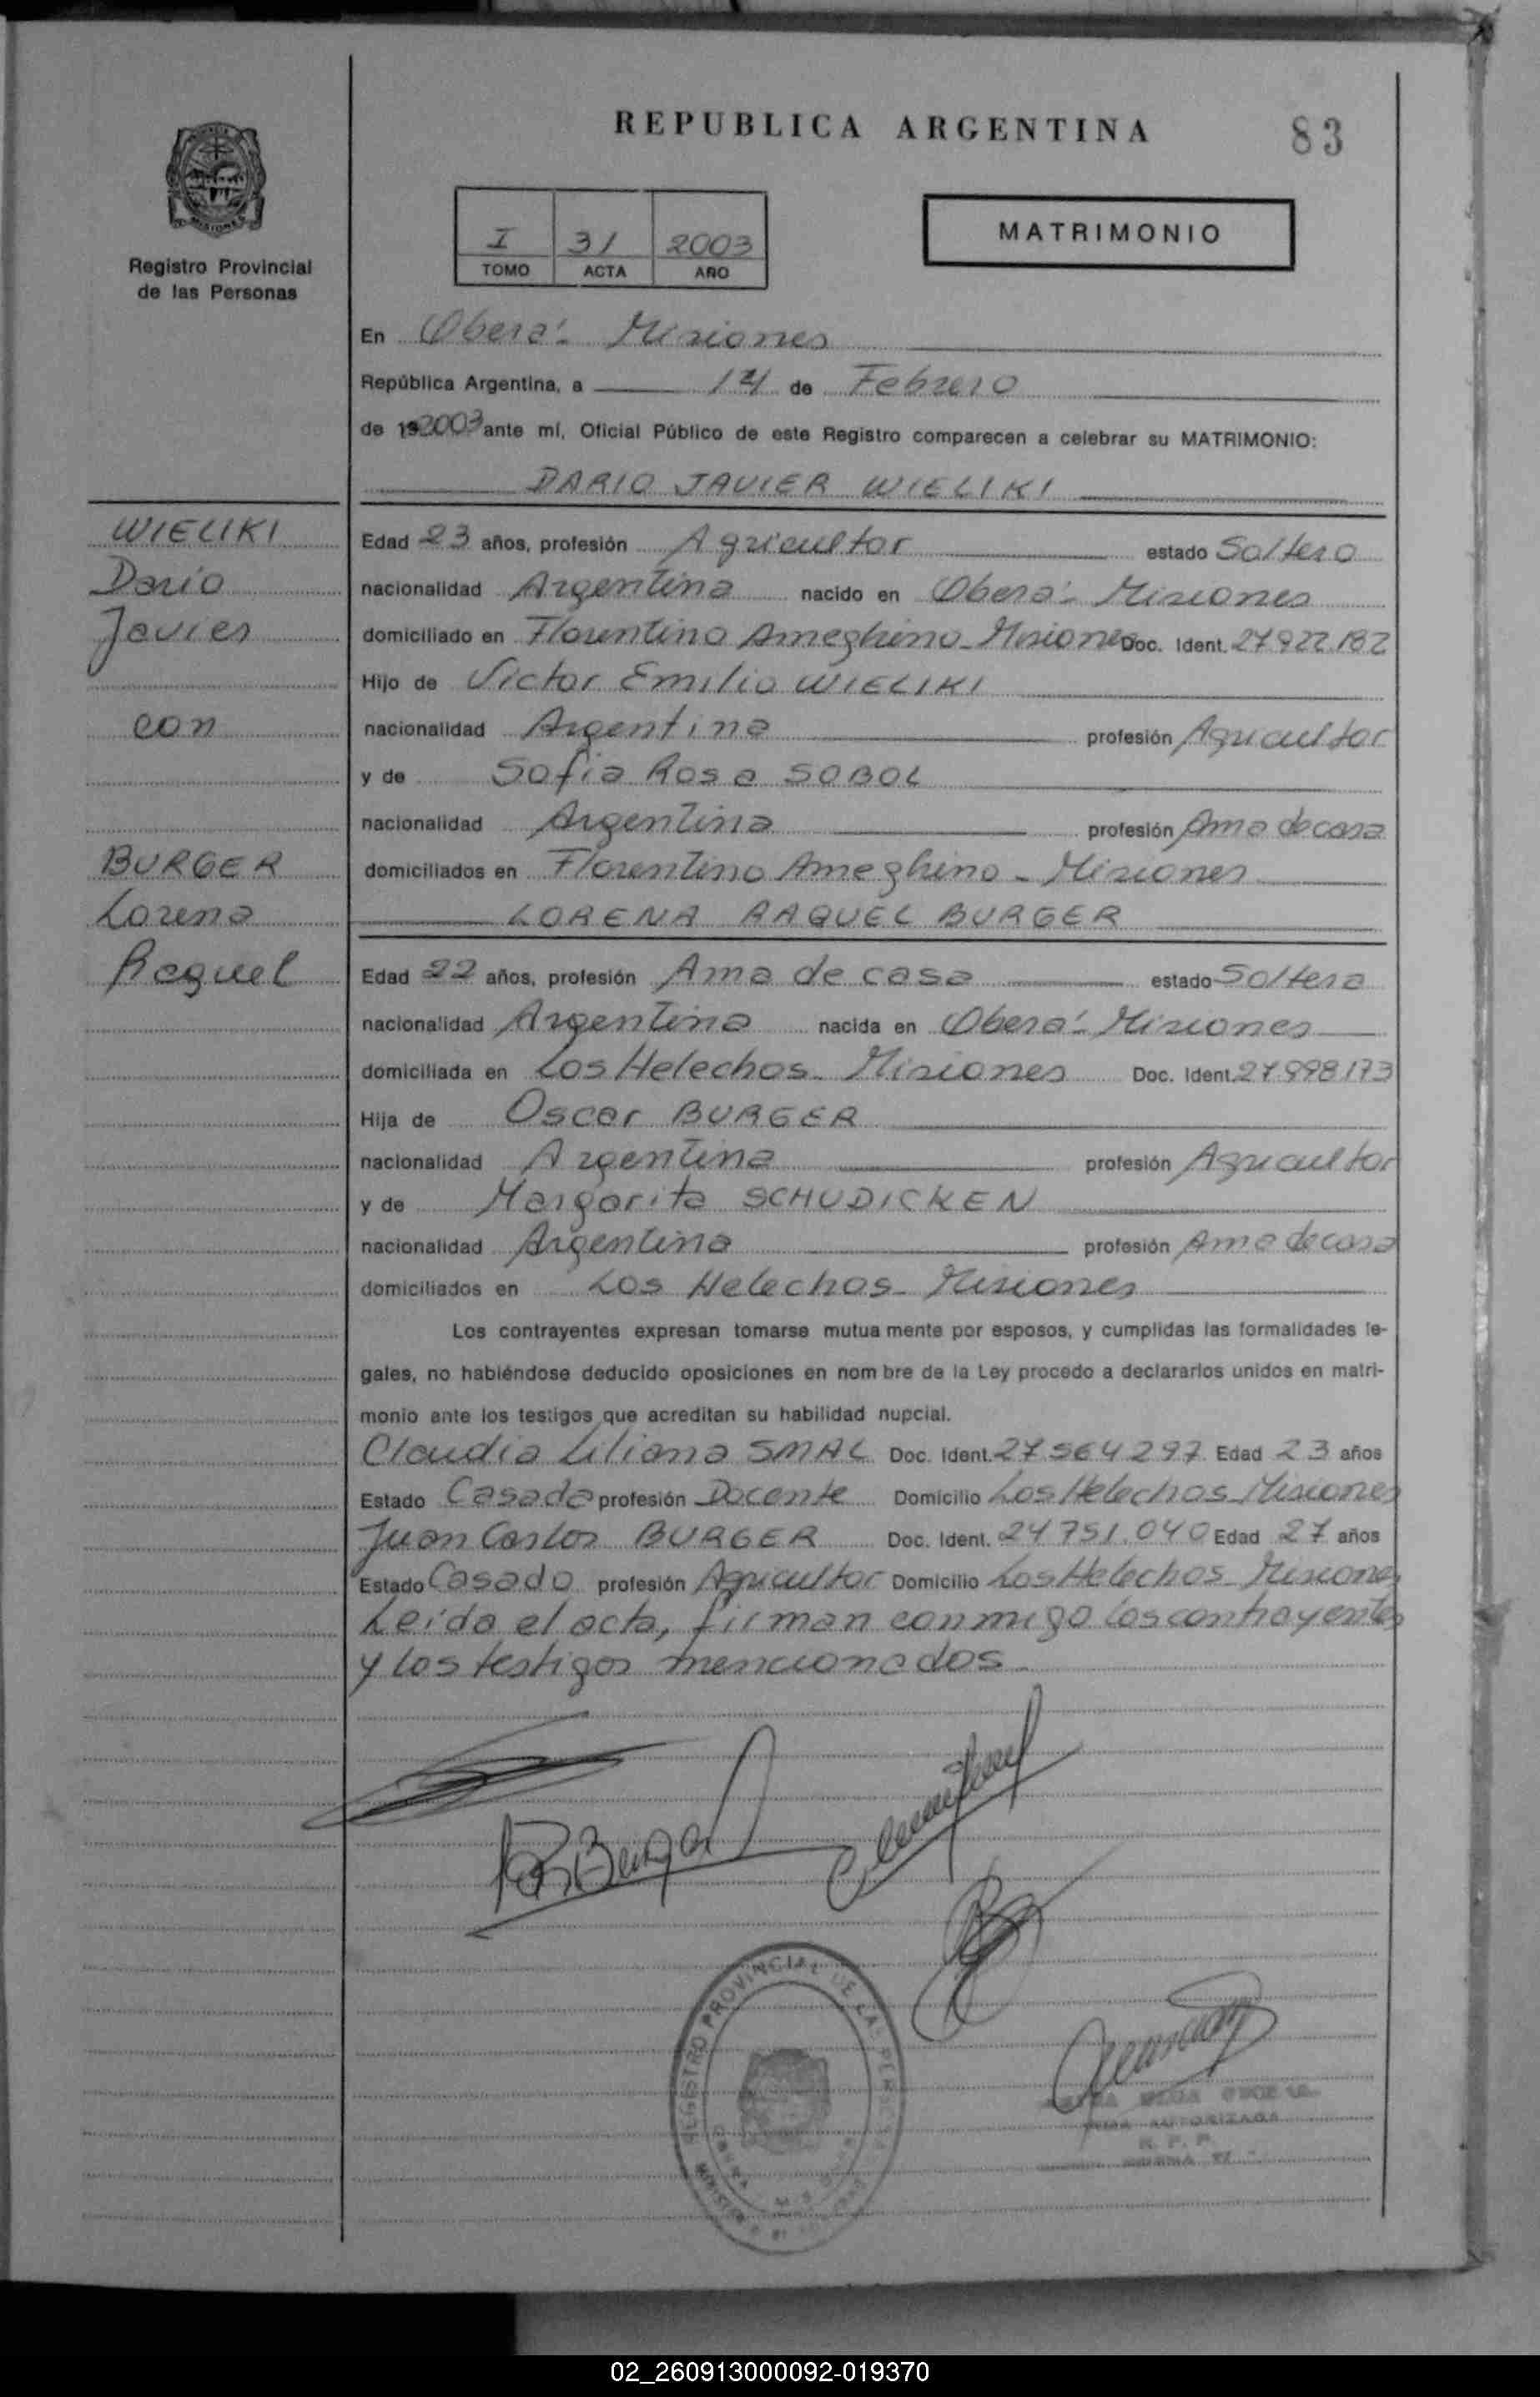 REPUBLICA ARGENTINA
83
I 31 2003
TOMO ACTA AÑO
MATRIMONIO
Registro Provincial
de las Personas
En Oberá - Misiones
República Argentina, a 14 de Febrero
de 192003 ante mí, Oficial Público de este Registro comparecen a celebrar su MATRIMONIO:
DARIO JAVIER WIELIKI
WIELIKI
Dario
Javier
con
BURGER
Lorena
Raquel
Edad 23 años, profesión Agricultor estado Soltero
nacionalidad Argentina nacido en Oberá - Misiones
domiciliado en Florentino Ameghino - Misiones Doc. Ident. 27.922.182
Hijo de Victor Emilio WIELIKI
nacionalidad Argentina profesión Agricultor
y de Sofia Rosa SOBOL
nacionalidad Argentina profesión Ama de casa
domiciliados en Florentino Ameghino - Misiones
LORENA RAQUEL BURGER
Edad 22 años, profesión Ama de casa estado Soltera
nacionalidad Argentina nacida en Oberá - Misiones
domiciliada en Los Helechos - Misiones Doc. Ident. 27.998.173
Hija de Oscar BURGER
nacionalidad Argentina profesión Agricultor
y de Margarita SCHUDICKEN
nacionalidad Argentina profesión Ama de casa
domiciliados en Los Helechos - Misiones
Los contrayentes expresan tomarse mutua mente por esposos, y cumplidas las formalidades le-
gales, no habiéndose deducido oposiciones en nom bre de la Ley procedo a declararlos unidos en matri-
monio ante los testigos que acreditan su habilidad nupcial.
Claudia Liliana SMAL Doc. Ident. 27.564.297 Edad 23 años
Estado Casada profesión Docente Domicilio Los Helechos - Misiones
Juan Carlos BURGER Doc. Ident. 24.751.040 Edad 27 años
Estado Casado profesión Agricultor Domicilio Los Helechos - Misiones
Leida el acta, firman conmigo los contrayentes
y los testigos mencionados.
REGISTRO PROVINCIAL DE LAS PERSONAS
AUTORIZADA
R. P. P.
02_260913000092-019370